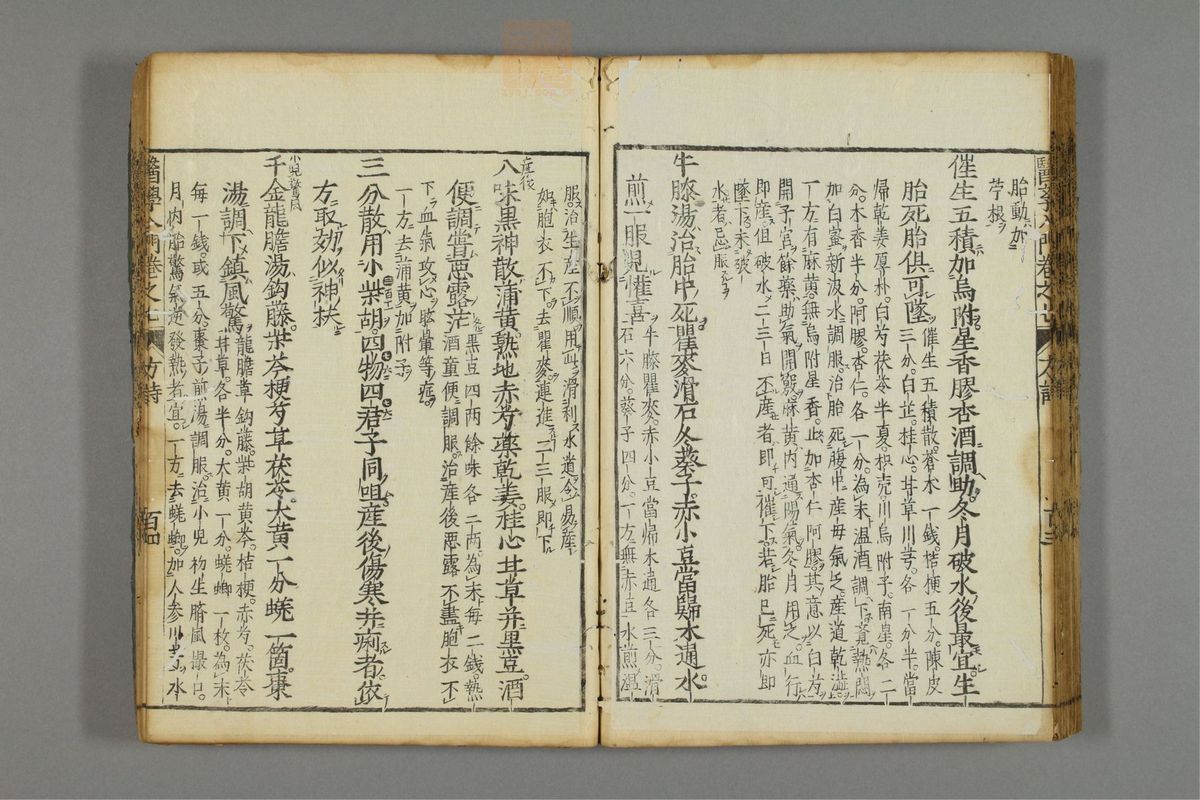 醫學入門卷之七 方詩 百三
胎動加
苧根
催生五積加烏附星香膠杏酒調助冬月破水後最宜生
胎死胎俱可墜
催生五積散蒼木一錢桔梗五分陳皮
三分白芷桂心甘草川芎各一分半當
帰乾姜厚朴白芍茯苓半夏枳壳川烏附子南星各二
分木香半分阿膠杏仁各一分為末温酒調下覚熱悶
加白蜜新汲水調服治胎死腹中産毋氣乏産道乾澁
一方有麻黄無烏附星香止加杏仁阿膠其意以白芍
開子宮餘藥助氣開竅麻黄内通陽氣冬月用之血行
即産但破水二三日不産者即可催下若胎已死亦即
墜下未破
水者忌服
牛膝湯治胎中死瞿麥滑石冬葵子赤小豆當歸木通水
煎一服見懽喜
牛膝瞿麥赤小豆當帰木通各三分滑
石六分葵子四分一方無赤豆水煎温
服治生産不順用此滑利水道令易産
如胞衣不下去瞿麥連進二三服即下
産後
八味黒神散蒲黄熟地赤芍藥乾姜桂心甘草并黒豆酒
便調嘗悪露茫
黒豆四両餘味各二両為末毎二錢熱
酒童便調服治産後悪露不盡胞衣不
下血氣攻心眩暈等症
一方去蒲黄加附子
三分散用小柴胡四物四君子同咀産後傷寒并痢者依
方取効似神扶
小児驚風
千金龍膽湯鈎藤柴芩梗芍草茯苓大黄一分蜣一箇棗
湯調下鎮風驚
龍膽草鈎藤柴胡黄芩桔梗赤芍茯苓
甘草各半分大黄一分蜣蜋一枚為末
毎一錢或五分棗子前湯調服治小児初生臍風撮口
月内胎驚氣者發熱者宜一方去蜣蜋加人参川芎水
醫學入門卷之七 方詩 百四